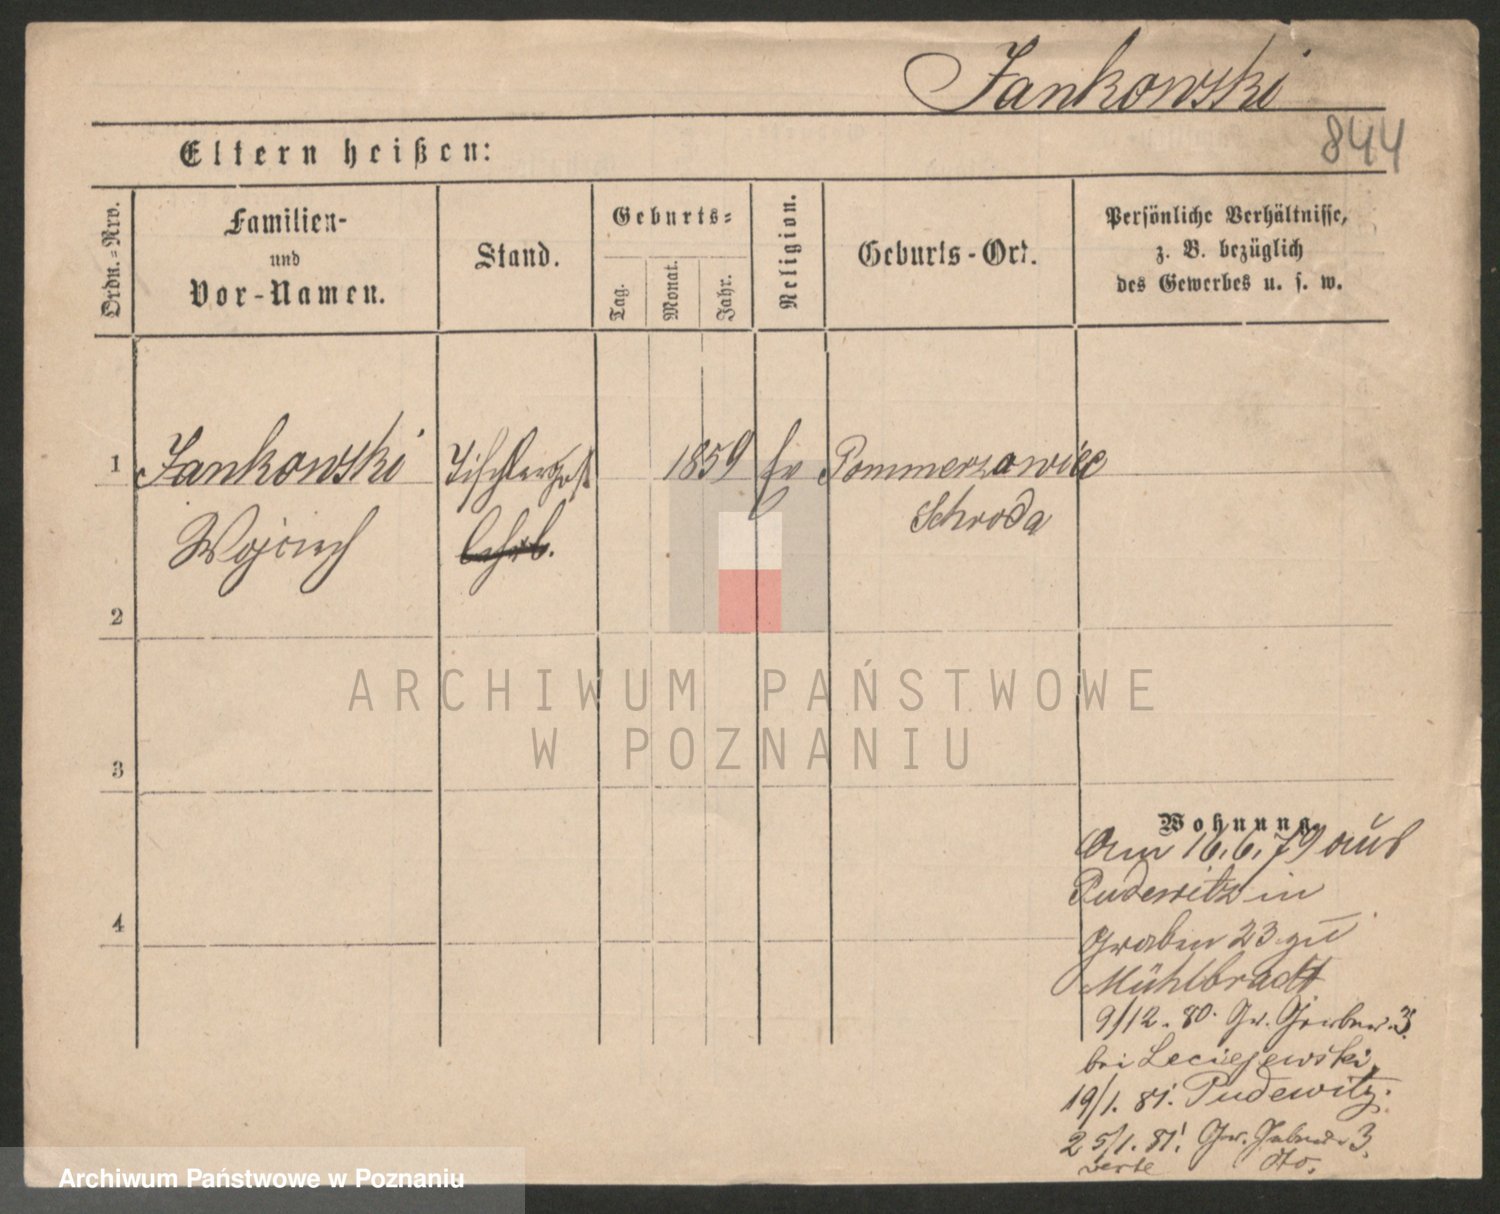 Jankowski
844
Eltern heißen:
Ordn.=Nro.
Familien-
und
Vor-Namen.
Stand.
Geburts=
Tag.
Monat.
Jahr.
Religion.
Geburts-Ort.
Persönliche Verhältnisse,
z. B. bezüglich
des Gewerbes u. s. w.
1
Jankowski
Tischlerges
1859
Pommerzowiec
Wojciech
Schroda
2
ARCHIWUM PAŃSTWOWE
W POZNANIU
3
Wohnung.
Am 16.6.79 aus
Pudewitz in
4
Graben 23 zu
Mühlbradt
9/12. 80. Gr. Gerber. 3.
bei Leciejewski,
19/1. 81. Pudewitz.
25/1. 81. Gr. Gerber 3.
dto.
Archiwum Państwowe w Poznaniu